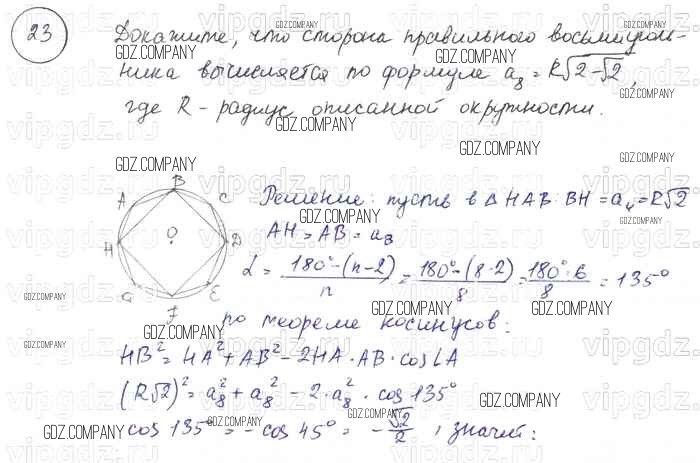 23 Докажите, что сторона правильного восьмиуголь-
ника вычисляется по формуле a₈ = R√(2-√2),
где R - радиус описанной окружности.
B
A C
Решение: пусть в Δ HAB: BH = a₄ = R√2
AH = AB = a₈
H O D
α = 180°-(n-2)/n = 180°-(8-2)/8 = 180°·6/8 = 135°
G E
F
по теореме косинусов:
HB² = HA² + AB² - 2HA·AB·cos∠A
(R√2)² = a₈² + a₈² - 2·a₈²·cos 135°
cos 135° = -cos 45° = -√2/2, значит:
GDZ.COMPANY
vipgdz.ru